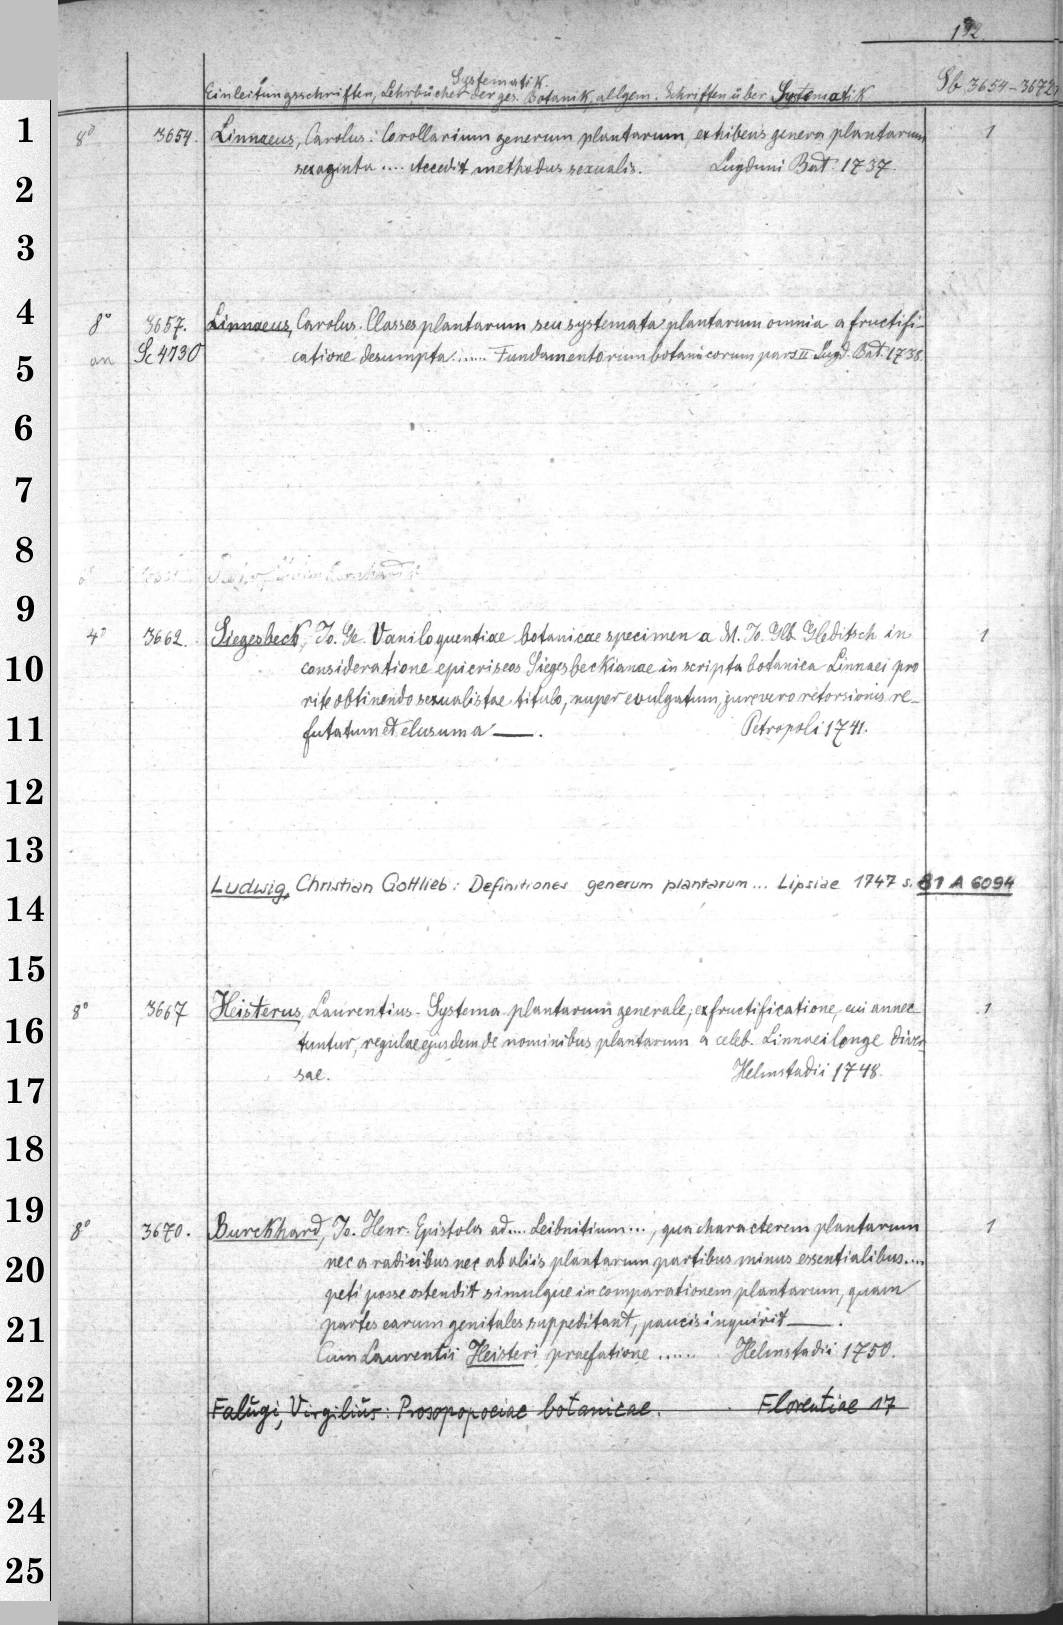 132.
Systematik.
Einleitungsschriften, Lehrbücher der ges. Botanik, allgem. Schriften über Systematik Sb 3654-3672
1 8° 3654. Linnaeus, Carolus: Corollarium generum plantarum, exhibens genera plantarum 1
2 sexaginta .... Accedit methodus sexualis. Lugduni Bat. 1737.
3
4 8° 3657. Linnaeus, Carolus. Classes plantarum seu systemata plantarum omnia a fructifi-
5 an Sc 4730 catione desumpta ...... Fundamentorum botanicorum pars II Lugd. Bat. 1738.
6
7
8
9 4° 3662. Siegesbeck, Jo. Ge. Vaniloquentiae botanicae specimen a M. Jo. Glb. Gleditsch in 1
10 consideratione epicriseos Siegesbeckianae in scripta botanica Linnaei pro
rite obtinendo sexualistae titulo, nuper evulgatum, jure vero retorsionis re-
11 futatum et elusum a —. Petropoli 1741.
12
13
14 Ludwig, Christian Gottlieb: Definitiones generum plantarum... Lipsiae 1747 s. 81 A 6094
15
16 8° 3667 Heisterus, Laurentius. Systema plantarum generale, ex fructificatione, cui annec- 1
tuntur, regulae ejusdem de nominibus plantarum a celeb. Linnaei longe diver-
17 sae. Helmstadii 1748.
18
19 8° 3670. Burckhard, Jo. Henr. Epistola ad.... Leibnitium..., qua characterem plantarum 1
20 nec a radicibus nec ab aliis plantarum partibus minus essentialibus....
peti posse ostendit simulque in comparationem plantarum, quam
21 partes earum genitales suppeditant, paucis inquirit —.
Cum Laurentii Heisteri praefatione ...... Helmstadii 1750.
22 Falugi, Virgilius: Prosopopoeiae botanicae. Florentiae 17
23
24
25